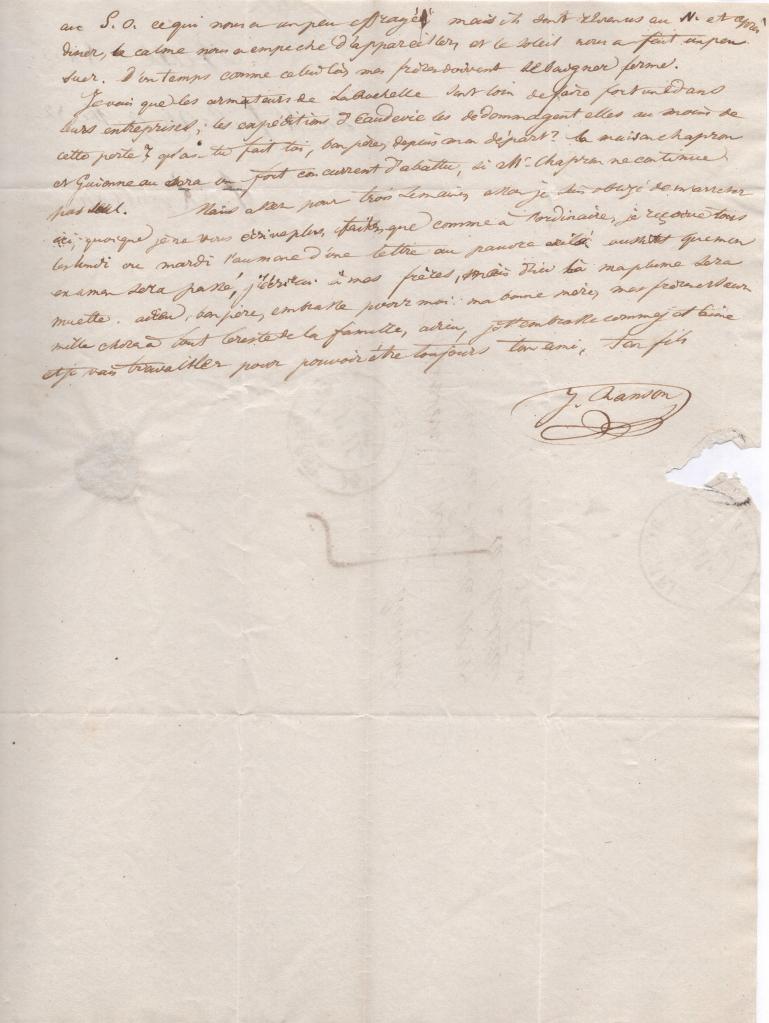 au S. O. ce qui nous a un peu effrayé, mais ils sont revenus au N. et après
diner, le calme nous a empeché d'appareiller, et le soleil nous a fait un peu
suer. D'un temps comme celui là, mes frères doivent se baigner ferme.
Je vois que les armateurs de La Rochelle sont loin de faire fortune dans
leurs entreprises; les expéditions d'eaudevie les dédommagent elles au moins de
cette perte? qu'as-tu fait toi, bon père, depuis mon départ? la maison Chapron
et Guionneau sera un fort concurrent d'abattu, si Mr. Chapron ne continue
pas seul. Mais pour trois semaines je suis obligé de m'arreter
ici, quoique je ne vous écrive plus, faites que comme à l'ordinaire, je reçoive tous
les lundi ou mardi l'aumone d'une lettre au pauvre exilé aussitot que mon
examen sera passé, j'écrirai à mes frères, mais d'ici là ma plume sera
muette. adieu, bon père, embrasse pour moi ma bonne mère, mes frères et soeur
mille choses à tout le reste de la famille, adieu, je t'embrasse comme je t'aime
et je vais travailler pour pouvoir être toujours ton ami, ton fils
J. Chanson